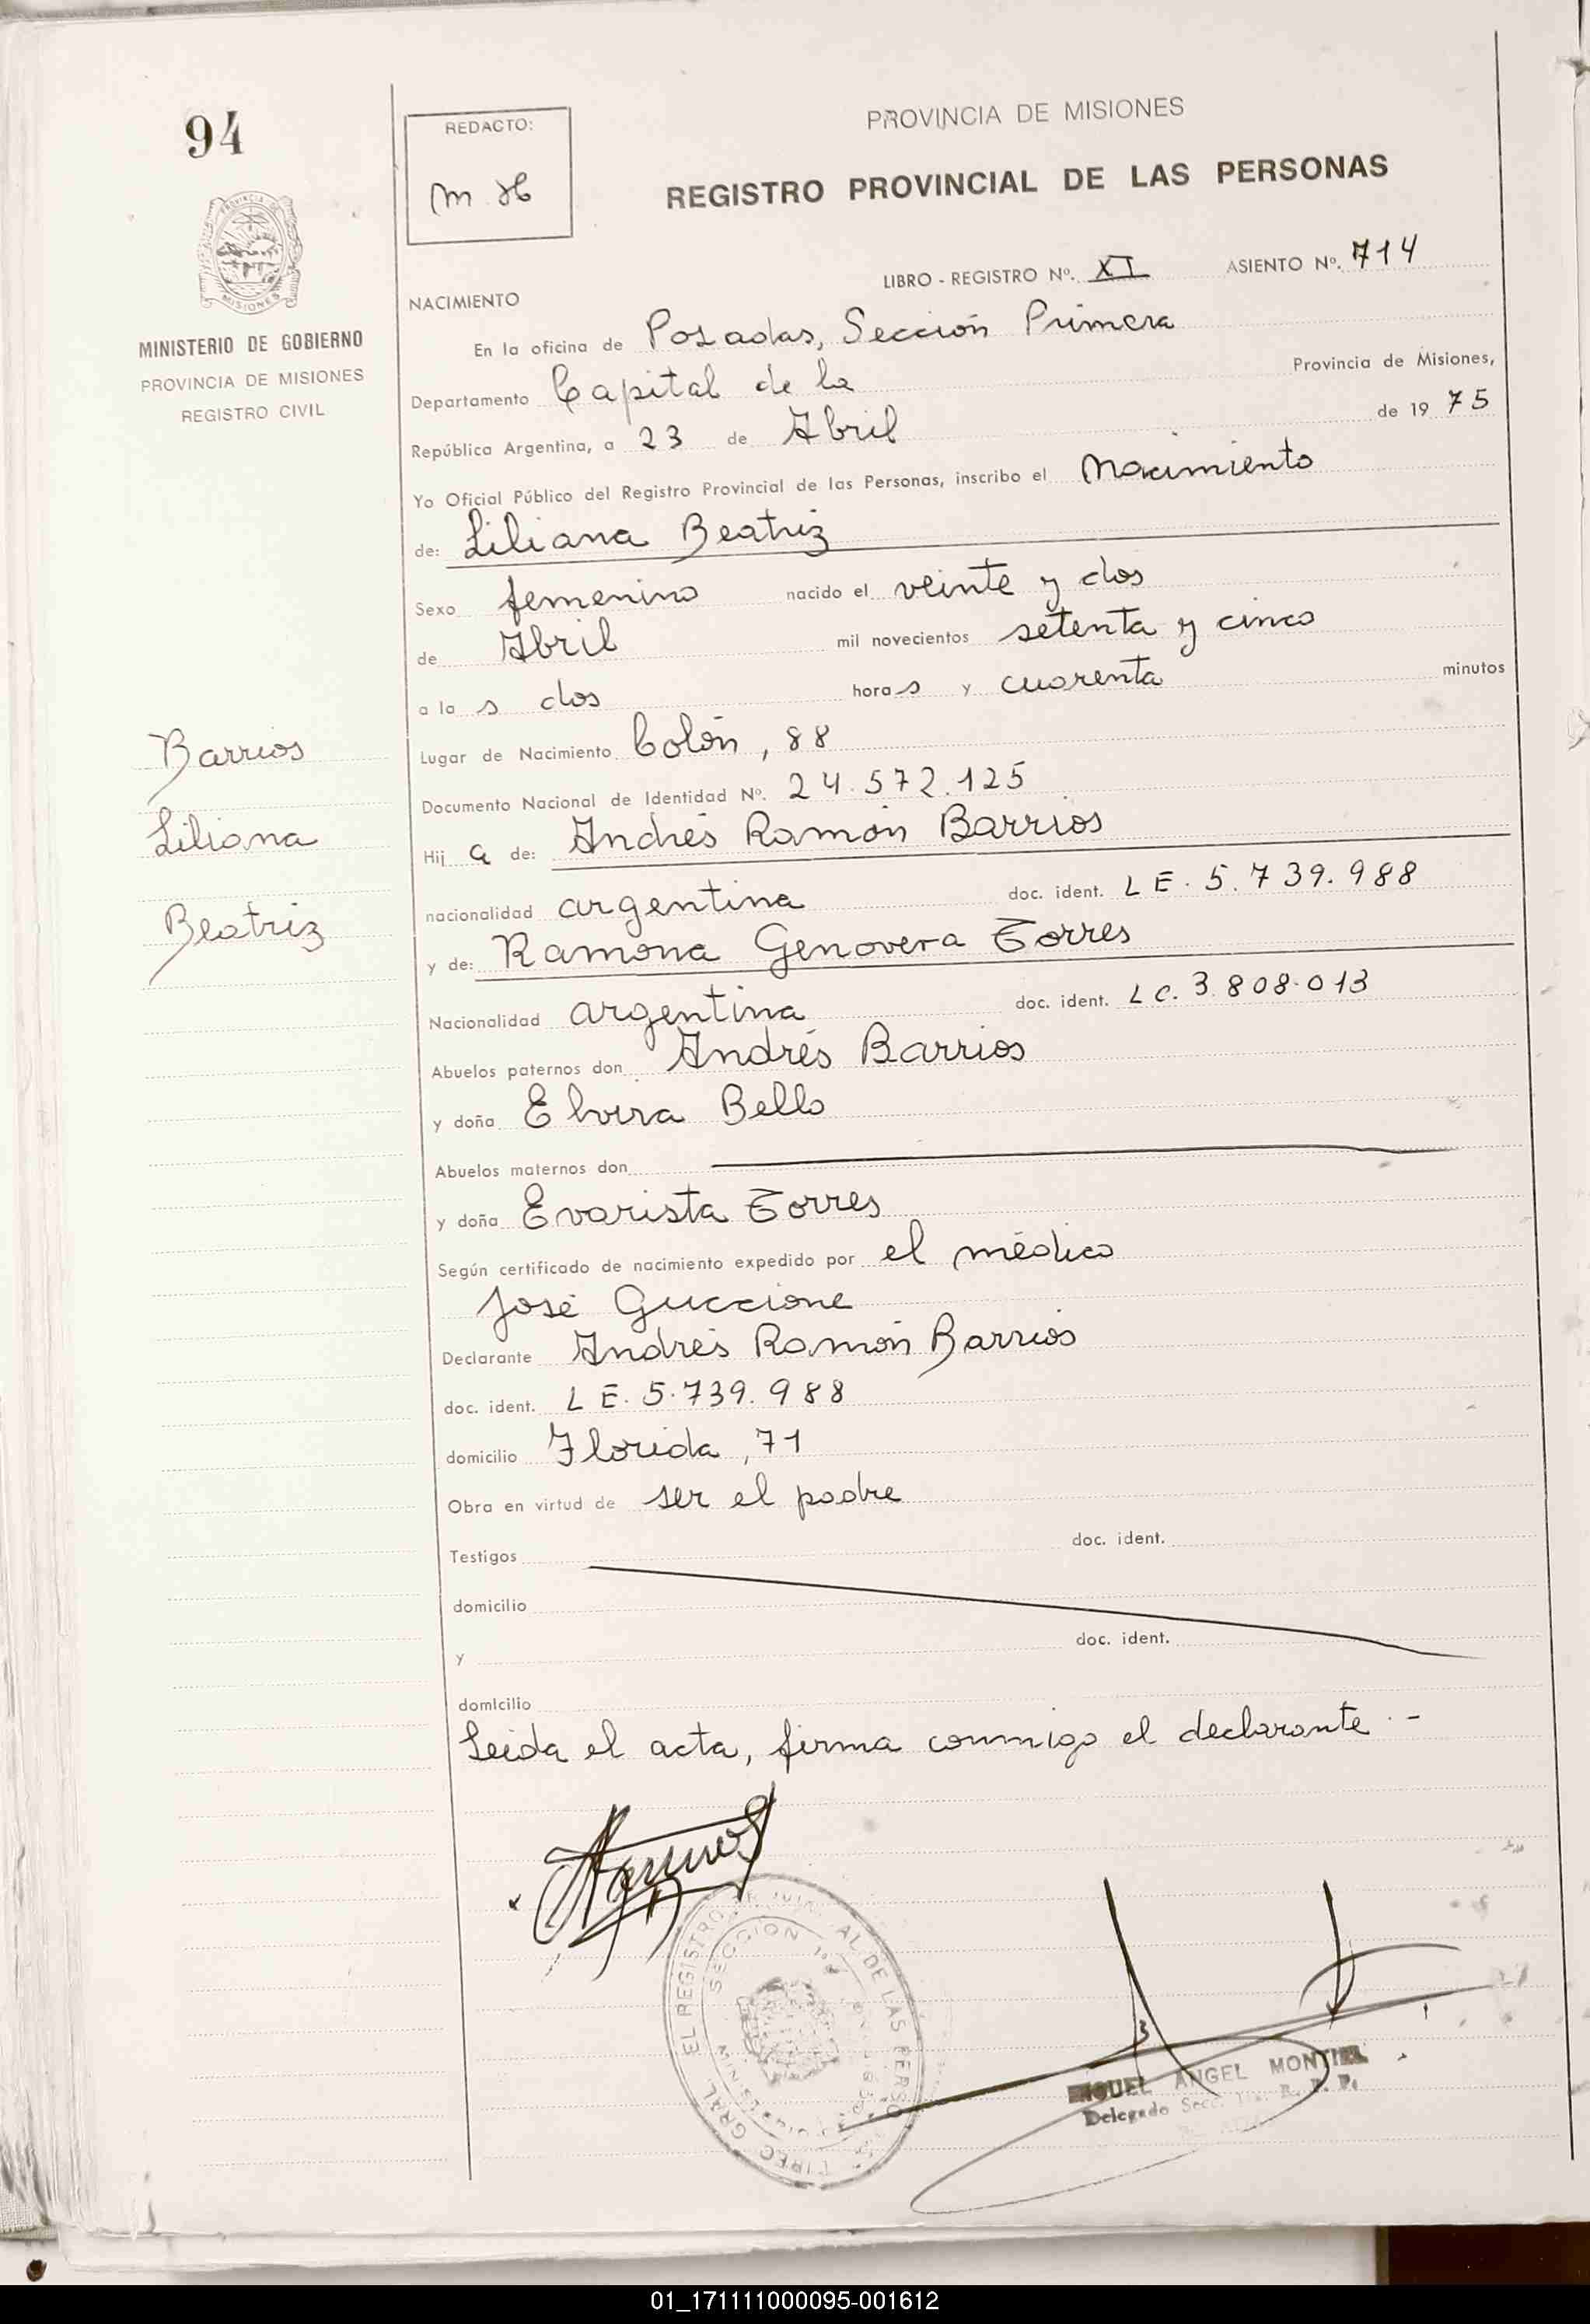 94
REDACTO:
PROVINCIA DE MISIONES
REGISTRO PROVINCIAL DE LAS PERSONAS
LIBRO - REGISTRO Nº. XI ASIENTO Nº. 714
NACIMIENTO
MINISTERIO DE GOBIERNO
PROVINCIA DE MISIONES
REGISTRO CIVIL
En la oficina de Posadas, Sección Primera
Departamento Capital de la Provincia de Misiones,
República Argentina, a 23 de Abril de 19 75
Yo Oficial Público del Registro Provincial de las Personas, inscribo el Nacimiento
de: Liliana Beatriz
Sexo femenino nacido el veinte y dos
de Abril mil novecientos setenta y cinco
a la s dos hora s y cuarenta minutos
Lugar de Nacimiento Colón, 88
Documento Nacional de Identidad Nº. 24.572.125
Hij a de: Andrés Ramón Barrios
nacionalidad argentina doc. ident. LE. 5.739.988
y de: Ramona Genovera Torres
Nacionalidad argentina doc. ident. LC. 3.808.013
Abuelos paternos don Andrés Barrios
y doña Elvira Bello
Abuelos maternos don
y doña Evarista Torres
Según certificado de nacimiento expedido por el médico
José Guccione
Declarante Andrés Ramón Barrios
doc. ident. LE. 5.739.988
domicilio Florida, 71
Obra en virtud de ser el padre
Testigos doc. ident.
domicilio
y doc. ident.
domicilio
Leida el acta, firma conmigo el declarante.-
Barrios
Liliana
Beatriz
SECCION 1ª
EL REGISTRO DE LAS PERSO
DIREC. GRAL.
MISIONES
MIGUEL ANGEL MONTIEL
Delegado Secc. 1ra. R. P. P.
01_171111000095-001612